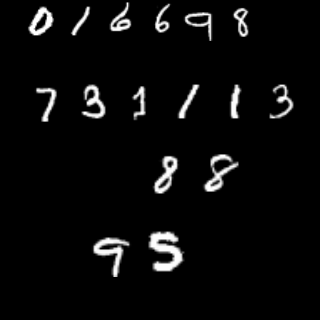 0 1 6 6 9 8
7 3 1 1 1 3
8 8
9 5